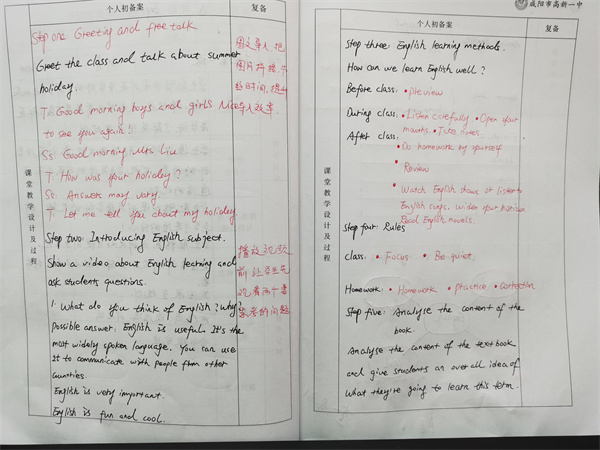 个人初备案
复备
Step one Greeting and free talk
Greet the class and talk about summer
holiday.
T: Good morning boys and girls. Nice
to see you again!
Ss: Good morning Mrs Liu
T: How was your holiday?
Ss: Answers may vary.
T: Let me tell you about my holiday
Step two: Introducing English subject.
Show a video about English learning and
ask students questions.
1. What do you think of English? Why?
possible answer: English is useful. It's the
most widely spoken language. You can use
it to communicate with people from other
countries.
English is very important.
English is fun and cool.
图文导入，把
图片
导入效率
播放视频
前让学生先
观看两个要
思考的问题
课堂教学设计及过程
咸阳市高新一中
个人初备案
复备
Step three: English learning methods.
How can we learn English well?
Before class: • preview
During class: • Listen carefully • Open your
mouths. • Take notes.
After class: • Do homework by yourself
• Review
• Watch English shows or listen to
English songs. widen your horizon
Read English novels.
Step four: Rules
class: • Focus • Be quiet.
Homework: • Homework • practice • Correction
Step five: Analyse the content of the
book.
Analyse the content of the text book
and give students an overall idea of
what they're going to learn this term.
课堂教学设计及过程